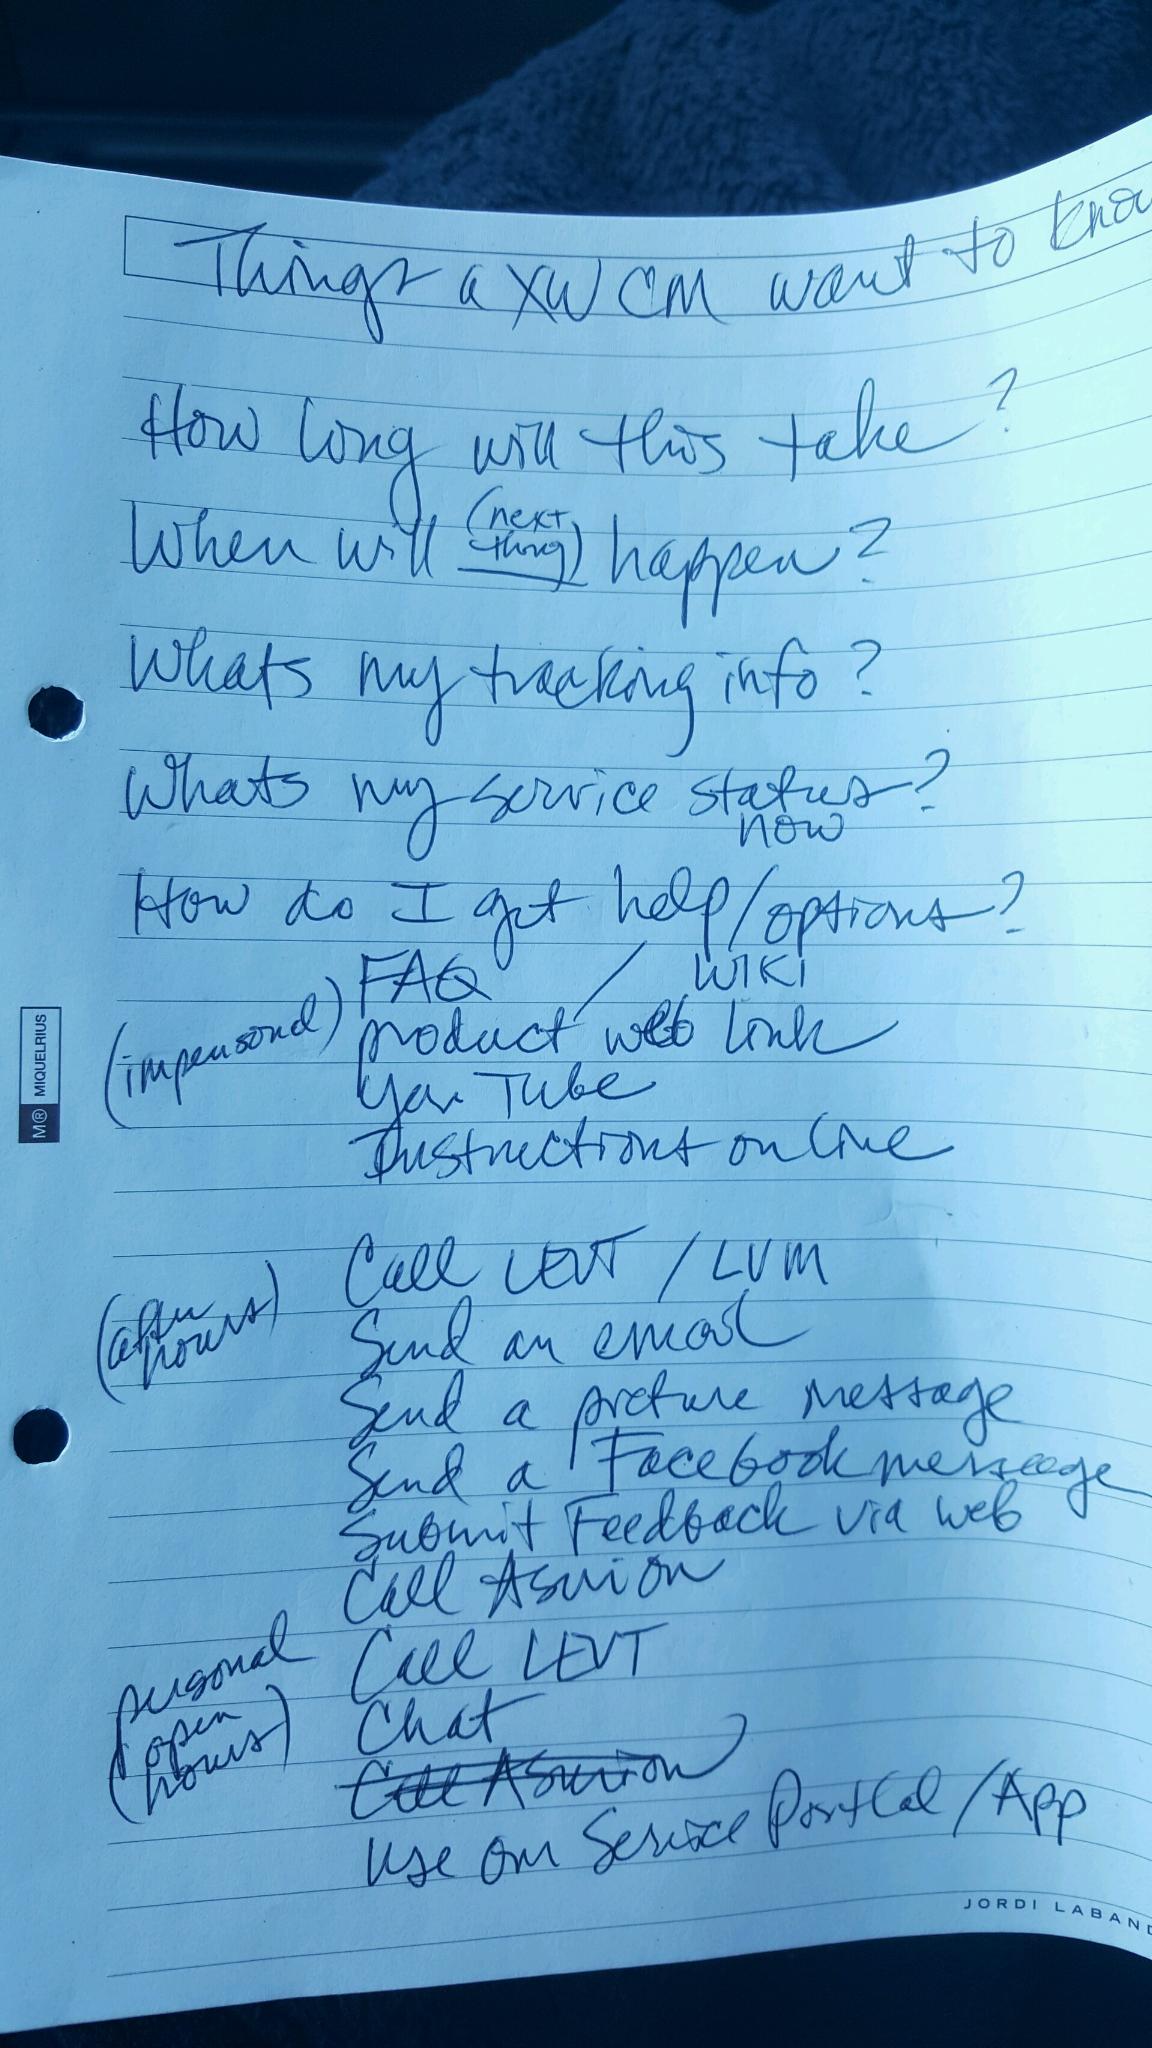 Things a XW CM want to know
How long will this take?
When will (next thing) happen?
Whats my tracking info?
Whats my service status?
now
How do I get help/options?
FAQ / WIKI
(impersonal) product web link
You Tube
Instructions online
Call LEVT / LVM
(after hours) Send an email
Send a picture message
Send a Facebook message
Submit Feedback via web
Call Asurion
personal Call LEVT
(open hours) Chat
Call Asurion
Use our Service Portal/App
M® MIQUELRIUS
JORDI LABAND